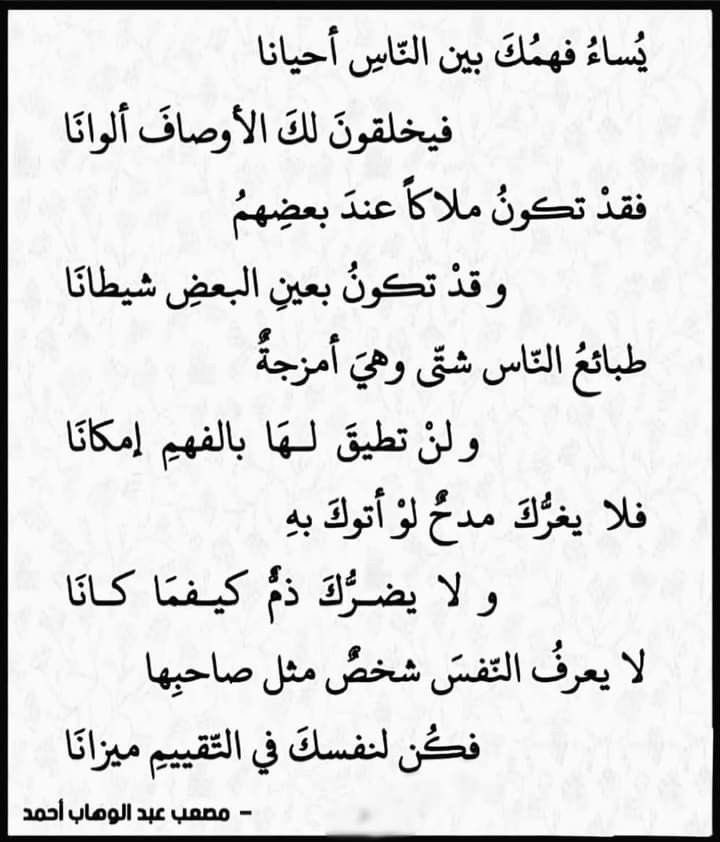 يُساءُ فهمُكَ بين النّاسِ أحيانا
فيخلقونَ لكَ الأوصافَ ألوانَا
فقدْ تكونُ ملاكاً عندَ بعضِهمُ
و قدْ تكونُ بعينِ البعضِ شيطانَا
طبائعُ النّاس شتّى وهيَ أمزجةٌ
و لنْ تطيقَ لـهَا بالفهمِ إمكانَا
فلا يغرُّكَ مدحٌ لوْ أتوكَ بهِ
و لا يضـرُّكَ ذمٌّ كيـفمَا كـانَا
لا يعرفُ النّفسَ شخصٌ مثل صاحبِها
فكُن لنفسكَ في التّقييمِ ميزانَا
- مصعب عبد الوهاب أحمد